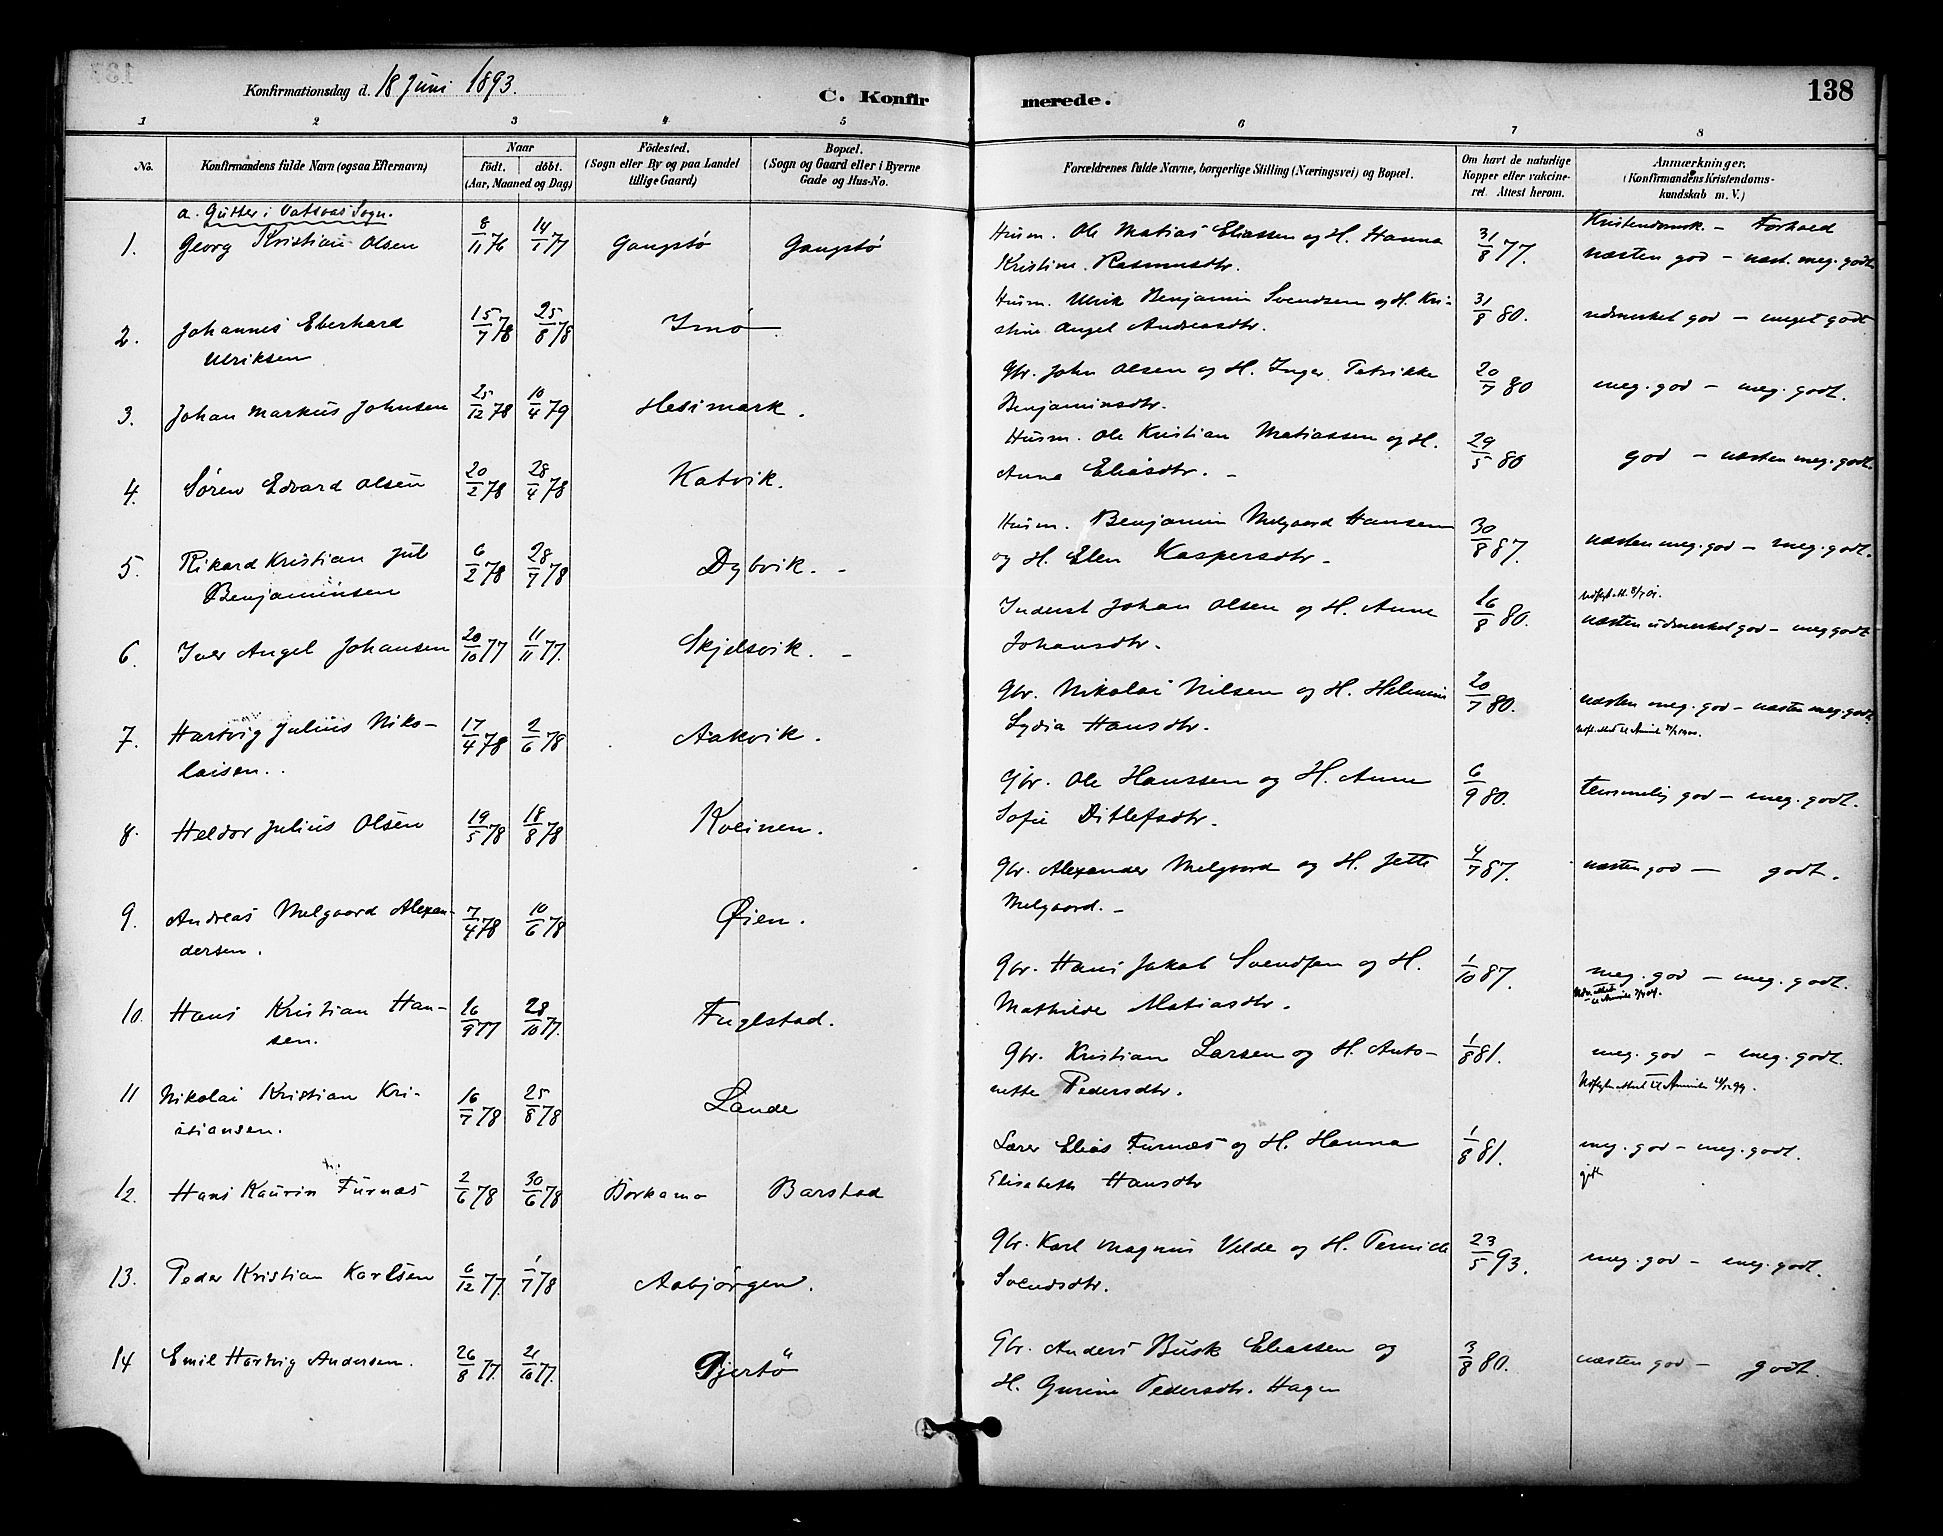 Konfirmationsdag d. 18 Juni 1893.
C. Konfir merede.
138
1 2 3 4 5 6 7 8
No.
Konfirmandens fulde Navn (ogsaa Efternavn)
Naar
født. døbt.
(Aar, Maaned og Dag)
Fødested.
(Sogn eller By og paa Landet
tillige Gaard)
Bopæl.
(Sogn og Gaard eller i Byerne
Gade og Hus-No.
Forældrenes fulde Navne, borgerlige Stilling (Næringsvei) og Bopæl.
Om havt de naturlige
Kopper eller vakcine-
ret. Attest herom.
Anmærkninger,
(Konfirmandens Kristendoms-
kundskab m. V.)
a. Gutter i Vatsvas Sogn.
Kristendomsk. – Forhold
1. Georg Kristian Olsen 8/11 76 14/1 77 Gangstø Gangstø Husm. Ole Matias Eliassen og H. Hanna 31/8 77. næsten god – næst. meg. godt
Kristine Rasmusdtr.
2. Johannes Eberhard 15/7 78 25/8 78 Husm. Ulrik Benjamin Svendsen og H. Kri- 31/8 80. udmerket god – meget godt
Ulriksen stine Angel Andreasdtr.
3. Johan Markus Johnsen 25/12 78 10/4 79 Hesimark. Gbr. John Olsen og H. Inger Petrikke 20/7 80 meg. god – meg. godt.
Benjaminsdtr.
4. Søren Edvard Olsen 20/2 78 28/4 78 Katvik. Husm. Ole Kristian Matiassen og H. 29/5 80 god – næsten meg. godt.
Anna Eliasdtr. –
5. Rikard Kristian Jul 6/2 78 28/7 78 Dybvik. – Husm. Benjamin Melgaard Hansen 30/8 87. næsten meg. god – meg. godt.
Benjaminsen og H. Elen Kaspersdtr –
6. Iver Angel Johansen 20/10 77 11/11 77. Skjelsvik. – Inderst Johan Olsen og H. Anne 16/8 80. næsten udmerket god – meg godt
Johansdtr.
7. Hartvig Julius Niko- 17/4 78 2/6 78 Aakvik. Gbr. Nikolai Nilsen og H. Helmine 20/7 80. næsten meg. god – næsten meg. godt
laisen. Lydia Hansdtr.
8. Heldor Julius Olsen 19/5 78 18/8 78 Kveinen. Gbr. Ole Hanssen og H. Anne 6/9 80. temmelig god – meg. godt.
Sofie Ditlefsdtr.
9. Andreas Melgaard Alexan- 7/4 78 10/6 78 Øien. Gbr. Alexander Melgaard og H. Jette 4/7 87. næsten god – godt.
dersen. Melgaard. –
10. Hans Kristian Han- 16/9 77 28/10 77. Fuglstad. Gbr. Hans Jakob Svendsen og H. 1/10 87. meg. god – meg. godt.
sen. Mathilde Matiasdtr.
11 Nikolai Kristian Kri- 16/7 78 25/8 78 Lande Gbr. Kristian Larsen og H. Anto- 1/8 81. meg. god – meg. godt.
stiansen. nette Pedersdtr.
12. Hans Kaurin Furnæs 2/6 78 30/6 78 Borkamo Barstad Lærer Elias Furnæs og H. Hanna 1/8 81. meg. god – meg. godt.
Elisabeth Hansdtr
13. Peder Kristian Karlsen 6/12 77. 1/7 78 Aabjørgen. Gbr. Karl Magnus Velde og H. 23/5 93. meg. god – meg. godt.
Svendsdtr.
14 Emil Hartvig Andersen. 26/8 77. 21/10 77. Gjertö Gbr. Anders Busk Eliassen og 3/8 80. næsten god – godt.
H. Gurine Pedersdtr. Hagen